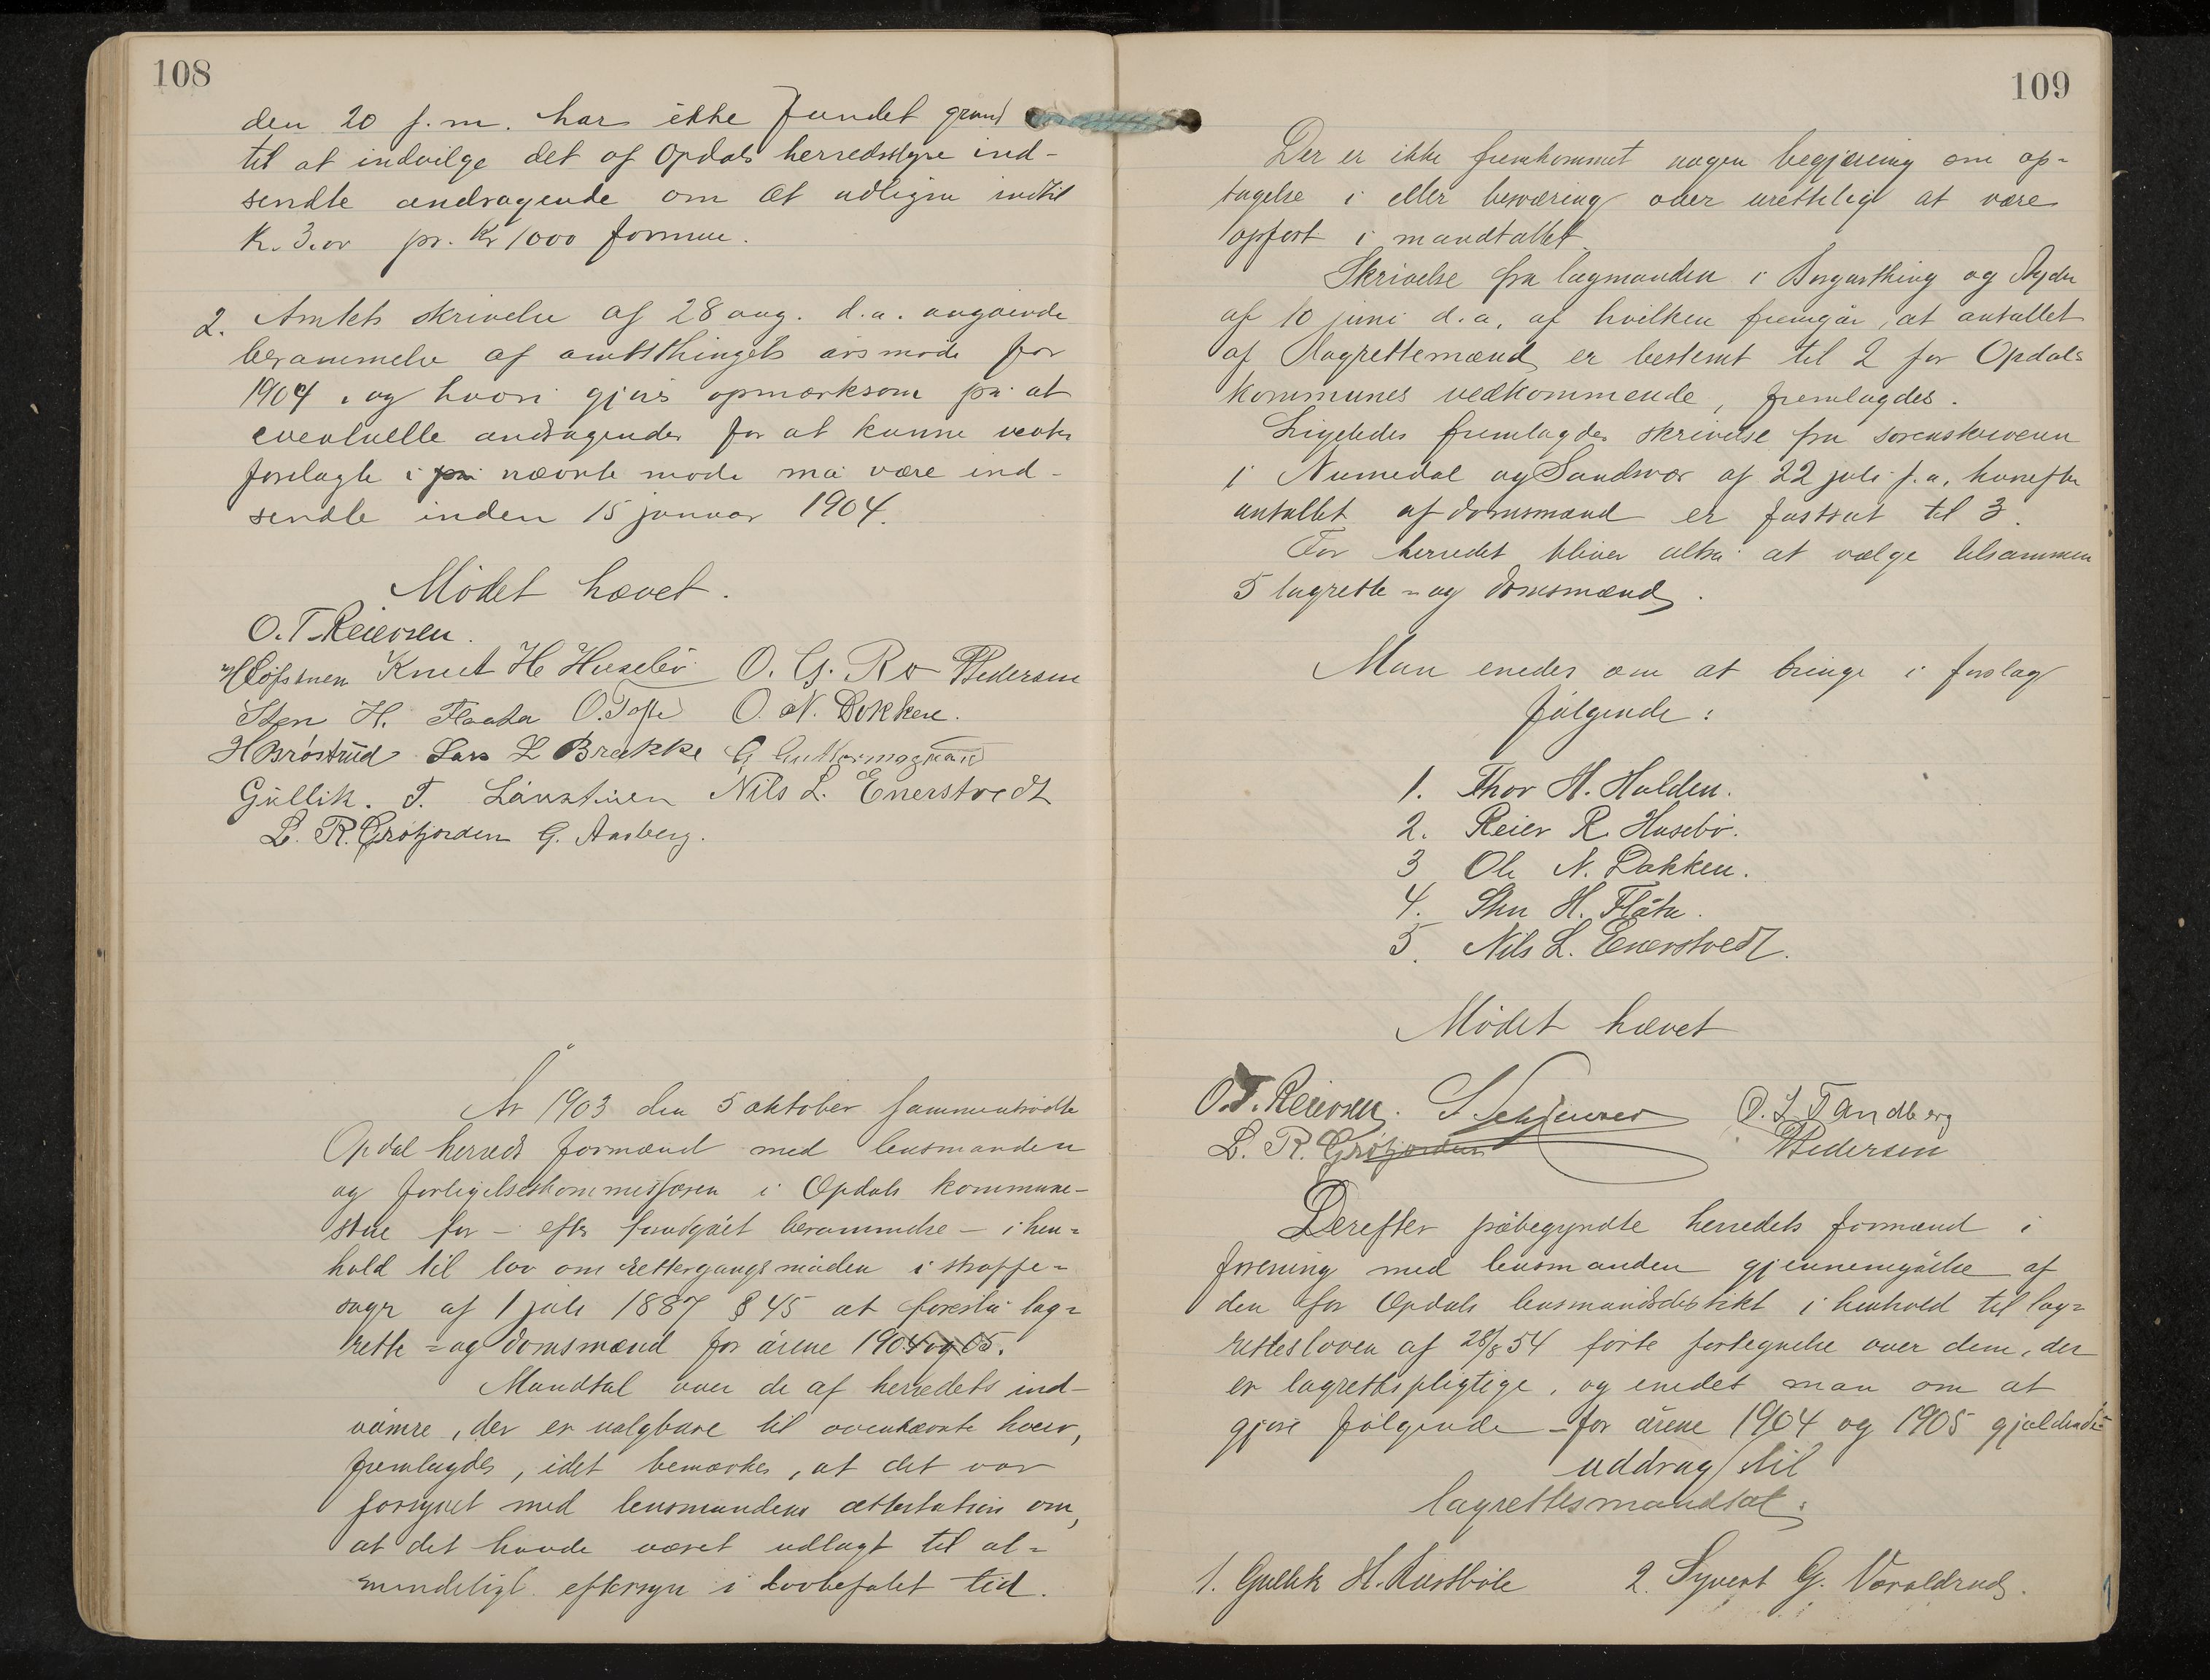 108
den 20 f.m. har ikke fundet grund
til at indvilge det af Opdals herredsstyre ind-
sendte andragende om at udligne indtil
Kr. 3.00 pr. Kr 1000 formue.
2. Amtets skrivelse af 28 aug. d.a. angående
berammelse af amtsthingets årsmøde for
1904, og hvori gjøres opmærksom på at
eventuelle andragender for at kunne ventes
forelagte i på nævnte møde må være ind-
sendte inden 15 januar 1904.
Mødet hævet.
O. T. Reiersen.
Knut H. Husebø O. G. Ro Pedersen
Sten H. Flaata O. Tofte O. N. Dokken.
H Brøstrud Lars L Brekke G Guttormsgaard
Gullik. T. Nils L. Enerstvedt
L. R. Grøtjorden G. Aasberg.
År 1903 den 5 oktober sammentrådte
Opdal herreds formænd med lensmanden
og forligelseskommissæren i Opdals kommune-
stue for – efter foregået berammelse – i hen-
hold til lov om rettergangsmåden i straffe-
sager af 1 juli 1887 § 45 at foreslå lag-
rette- og domsmænd for årene 1904 og 05.
Mandtal over de af herredets ind-
vånere, der er valgbare til ovennævnte hverv,
fremlagdes, idet bemærkes, at det var
forsynet med lensmandens attestation om,
at det havde været udlagt til al-
mindeligt eftersyn i lovbefalet tid.
109
Der er ikke fremkommet nogen begjæring om op-
tagelse i eller besværing over uretteligt at være
opført i mandtallet.
Skrivelse fra lagmanden i Borgarthing og Agder
af 10 juni d.a. af hvilken fremgår, at antallet
af lagrettemænd er bestemt til 2 for Opdals
kommunes vedkommende, fremlagdes.
Ligeledes fremlagdes skrivelse fra sorenskriveren
i Numedal og Sandsvær af 22 juli f.a. hvorefter
antallet af domsmænd er fastsat til 3.
For herredet bliver altså at vælge tilsammen
5 lagrette- og domsmænd.
Man enedes om at bringe i forslag
følgende:
1. Thor H. Halden.
2. Reier R. Husebø.
3 Ole N. Dokken.
4. Sten H. Flåta.
5. Nils L. Enerstvedt.
Mødet hævet
O. T. Reiersen. O. L Tandberg
L. R. Grøtjorden Pedersen
Derefter påbegyndte herredets formænd i
forening med lensmanden gjennemgåelse af
den for Opdals lensmandsdistrikt i henhold til lag-
rettesloven af 28/8 54 førte fortegnelse over dem, der
er lagrettespligtige, og enedes man om at
gjøre følgende – for årene 1904 og 1905 gjældende –
uddrag til
lagrettesmandtal:
1. Gullik H. 2. Syvert G. Varaldrud.